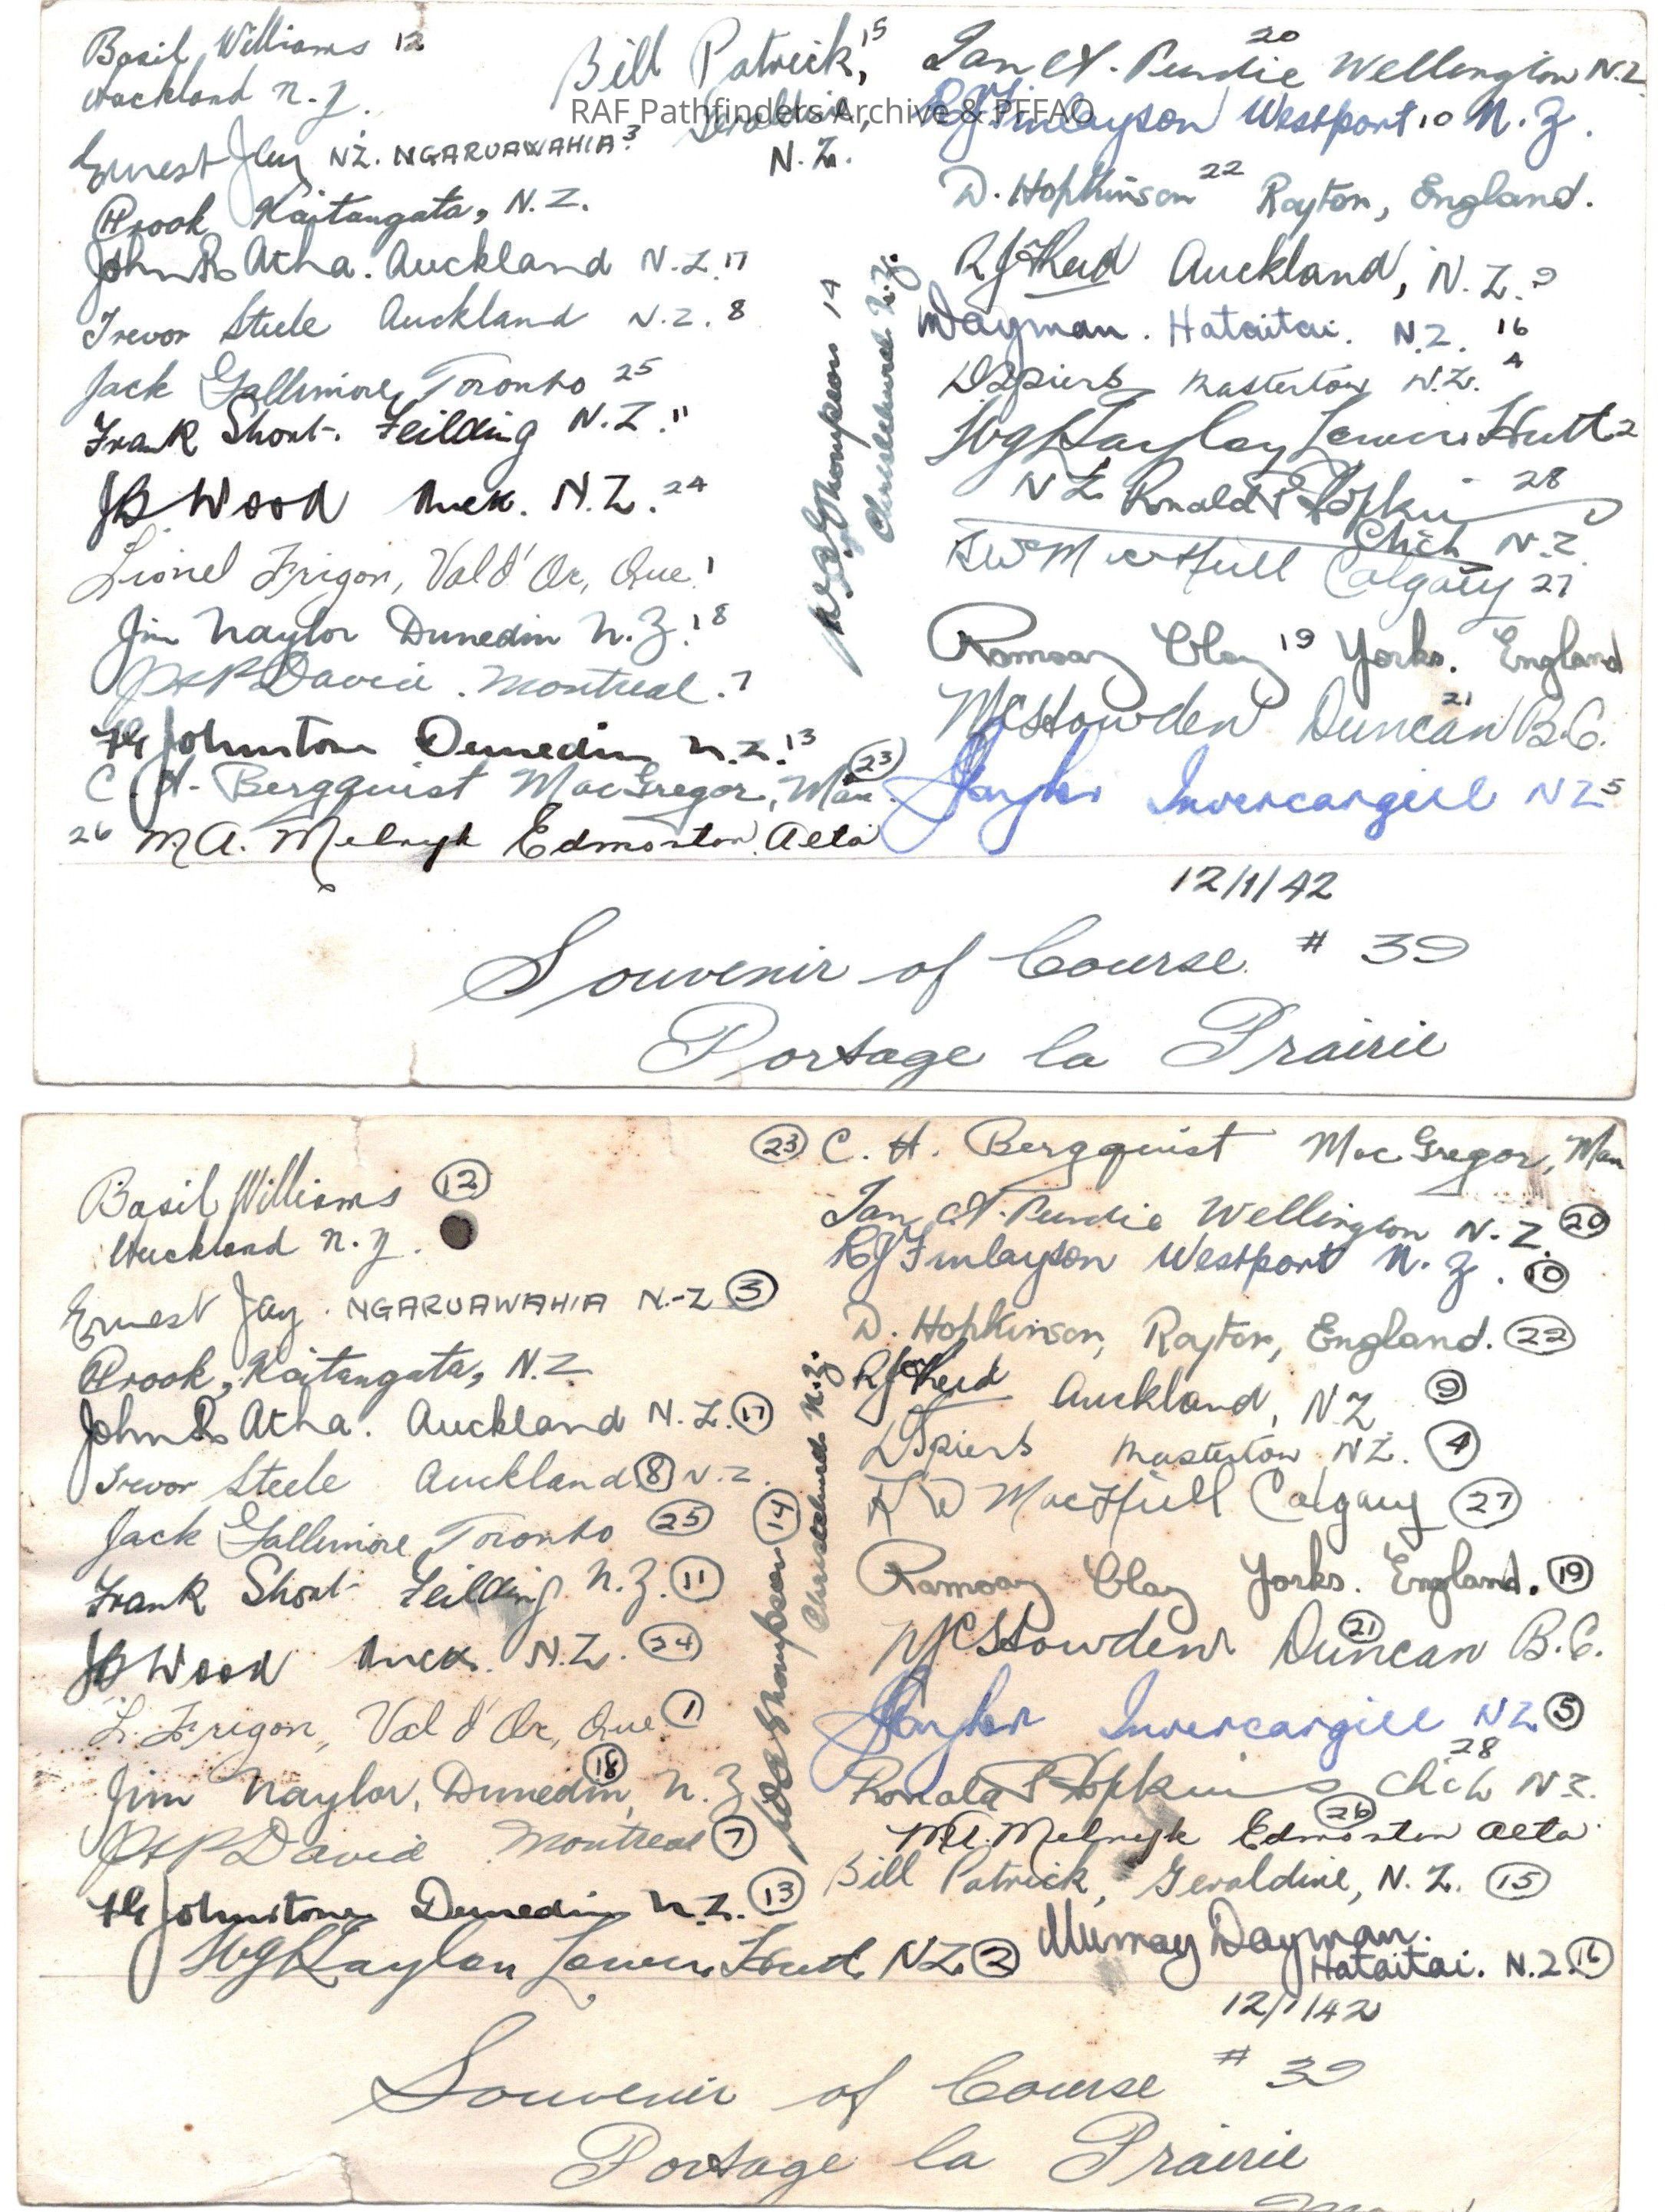 Basil Williams 12
Auckland N.Z.
Ernest Jay NZ. NGARUAWAHIA 3
Crook Kaitangata, N.Z.
John R Atha. Auckland N.Z. 17
Trevor Steele Auckland N.Z. 8
Jack Gallimore, Toronto 25
Frank Short. Feilding N.Z. 11
JB Wood Auck. N.Z. 24
Lionel Frigon, Val d'Or, Que. 1
Jim Naylor Dunedin N.Z. 18
David. Montreal. 7
Johnstone Dunedin N.Z. 13
C. H. Bergquist MacGregor, Man. 23
26 M.A. Melnyk Edmonton, Alta
Bill Patrick, 15
Geraldine,
N.Z.
RAF Pathfinders Archive & PFFAO
Thompson 14
Christchurch N.Z.
Ian A. Purdie 20 Wellington N.Z.
RJ Finlayson Westport 10 N.Z.
D. Hopkinson 22 Royton, England.
Auckland, N.Z. 9
Dayman. Hataitai. N.Z. 16
D Spiers Masterton N.Z. 4
Lower Hutt 2
NZ
Ronald Hopkins 28
Chch N.Z.
Calgary 27
Ramsay Clay 19 Yorks. England
Duncan 21 B.C.
Invercargill NZ 5
12/1/42
Souvenir of Course # 39
Portage la Prairie
Basil Williams 12
Auckland N.Z.
Ernest Jay. NGARUAWAHIA N.-Z 3
Crook, Kaitangata, N.Z
John R Atha. Auckland N.Z. 17
Trevor Steele Auckland 8 N.Z.
Jack Gallimore, Toronto 25
Frank Short Feilding N.Z. 11
JB Wood Auck. N.Z. 24
L. Frigon, Val d'Or, Que 1
Jim Naylor, Dunedin, 18 N.Z
David Montreal 7
Johnstone Dunedin N.Z. 13
Lower Hutt NZ. 2
Thompson 14
Christchurch N.Z.
23 C. H. Bergquist MacGregor, Man
Ian A. Purdie Wellington N.Z. 20
RJ Finlayson Westport N.Z. 10
D. Hopkinson, Royton, England. 22
Auckland, NZ 9
D Spiers Masterton NZ. 4
MacHull Calgary 27
Ramsay Clay Yorks. England. 19
Duncan 21 B.C.
Invercargill NZ 5
Ronald Hopkins Chch NZ. 28
M.A. Melnyk Edmonton 26 Alta
Bill Patrick, Geraldine, N.Z. 15
Murray Dayman.
Hataitai. N.Z. 16
12/1/42
Souvenir of Course # 39
Portage la Prairie